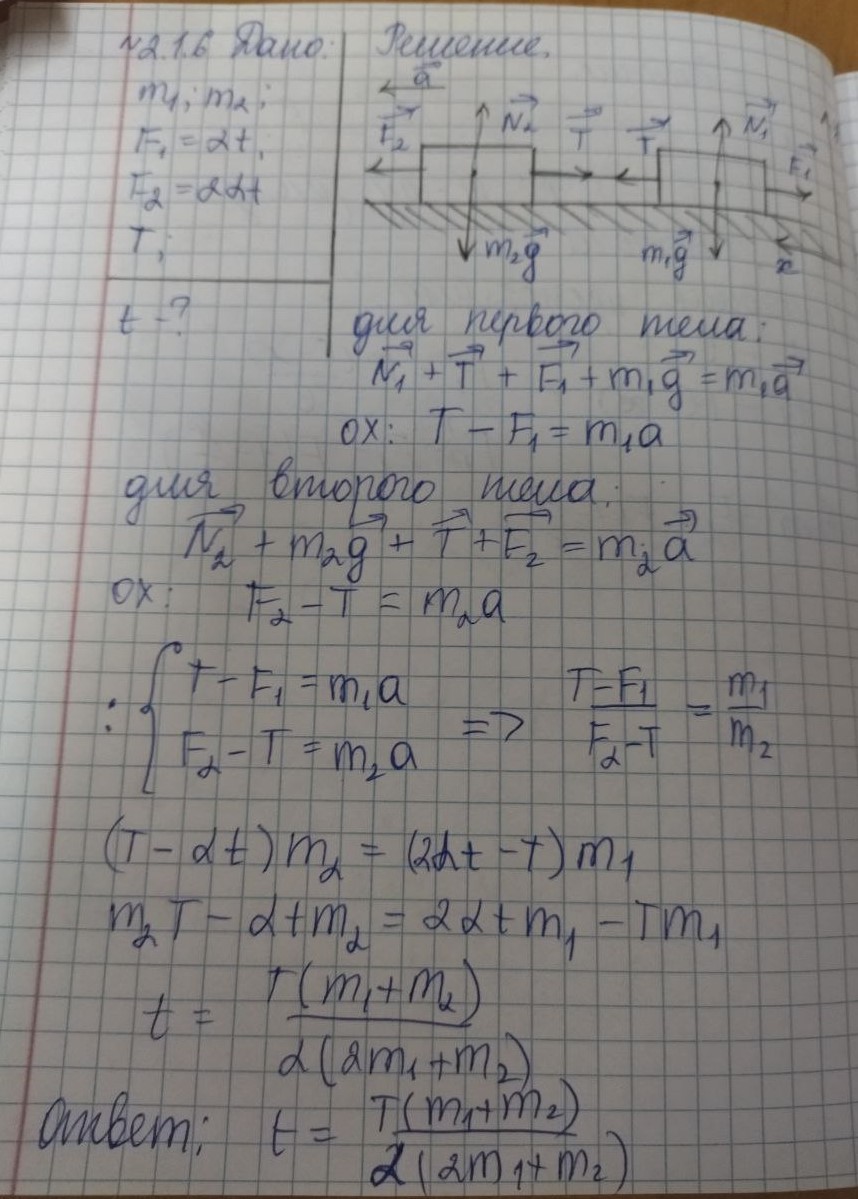 №2.1.6 Дано: Решение.
m₁; m₂;
F₁ = αt,
F₂ = 2αt
T,
t - ?
a⃗
F⃗₂ N⃗₂ T⃗ T⃗ N⃗₁ F⃗₁
m₂g⃗ m₁g⃗ x
для первого тела:
N⃗₁ + T⃗ + F⃗₁ + m₁g⃗ = m₁a⃗
ox: T - F₁ = m₁a
для второго тела:
N⃗₂ + m₂g⃗ + T⃗ + F⃗₂ = m₂a⃗
ox: F₂ - T = m₂a
: { T - F₁ = m₁a
F₂ - T = m₂a => (T - F₁)/(F₂ - T) = m₁/m₂
(T - αt)m₂ = (2αt - T)m₁
m₂T - αtm₂ = 2αtm₁ - Tm₁
t = T(m₁+m₂)/α(2m₁+m₂)
Ответ: t = T(m₁+m₂)/α(2m₁+m₂)